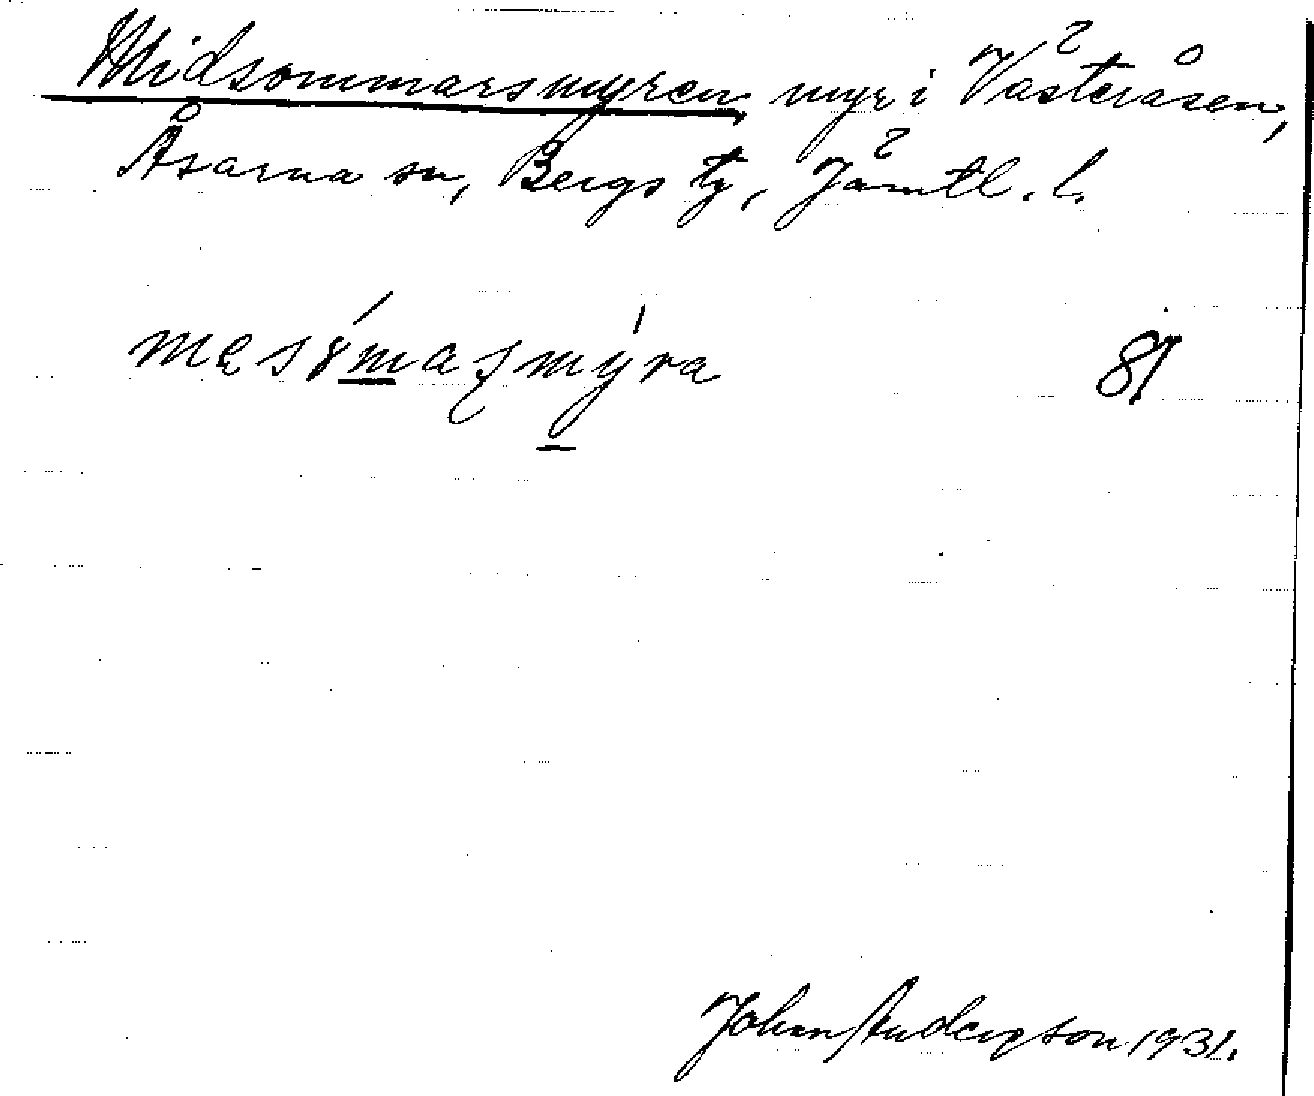 Midsommarsmyren, myr i Västeråsen,
Åsarna sn, Bergs tg, Jämtl. l.
81
John Anderson 1931.